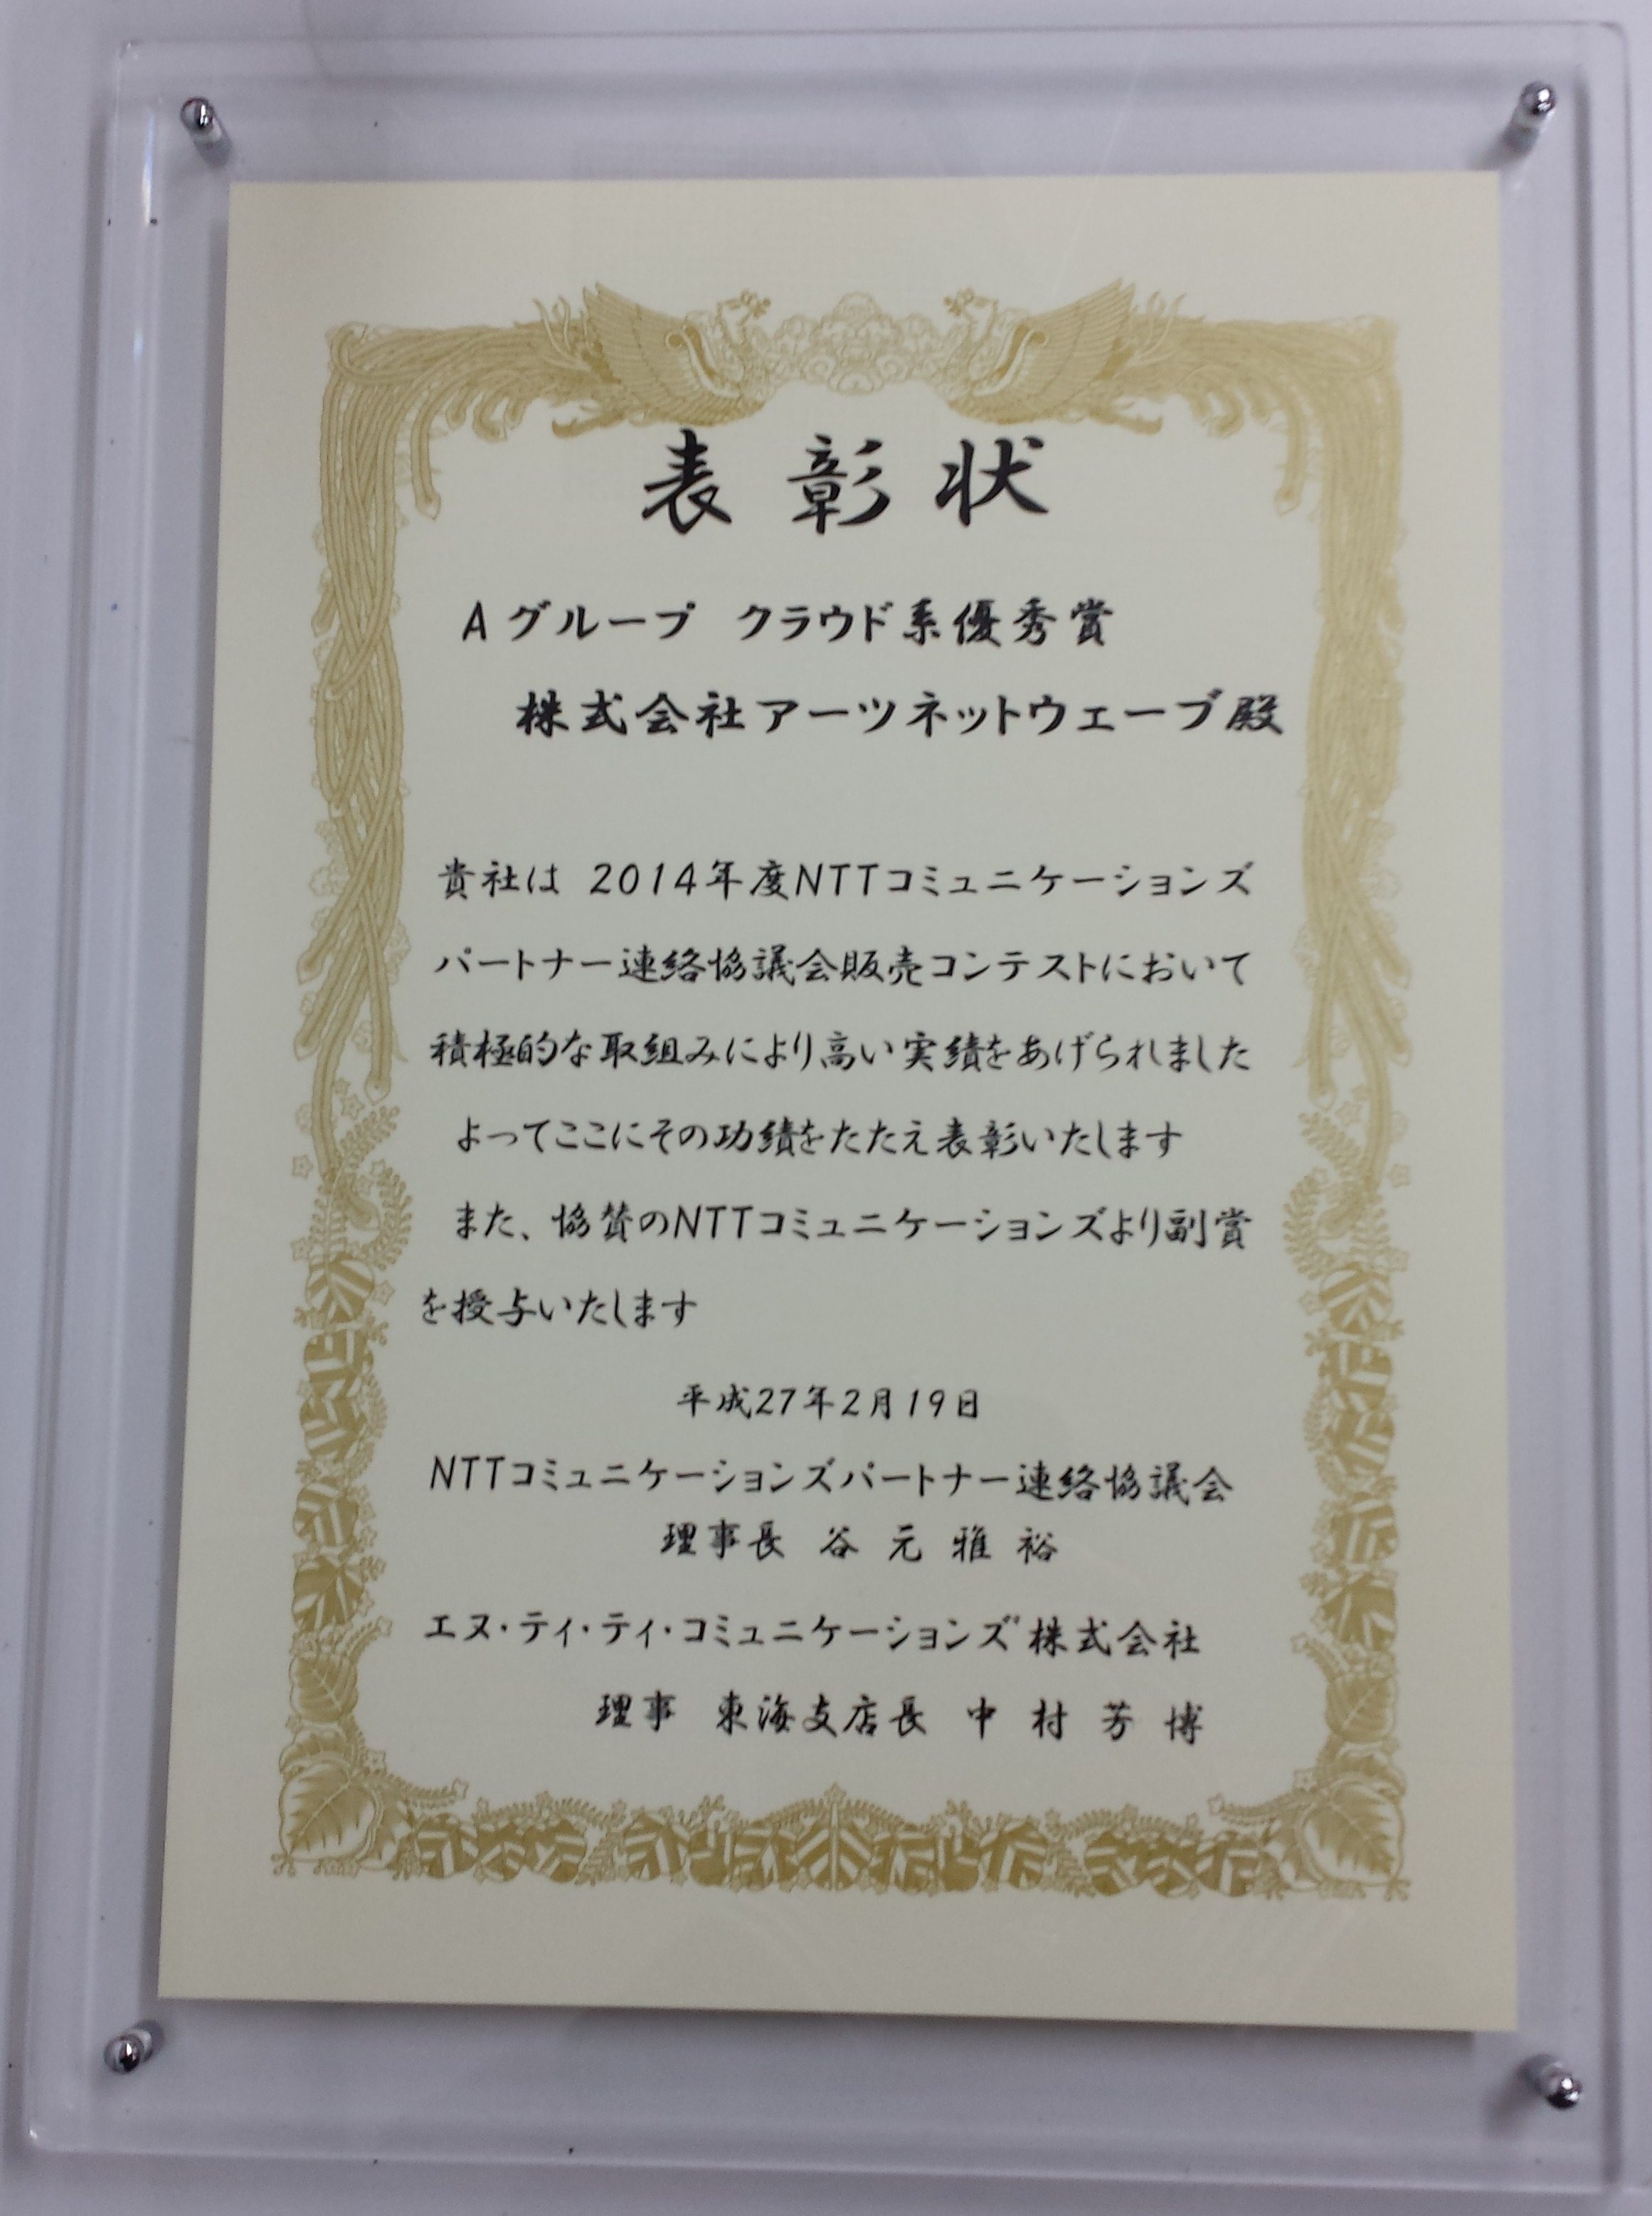 表彰状
Aグループ クラウド系優秀賞
株式会社アーツネットウェーブ殿
貴社は 2014年度NTTコミュニケーションズ
パートナー連絡協議会販売コンテストにおいて
積極的な取組みにより高い実績をあげられました
よってここにその功績をたたえ表彰いたします
また、協賛のNTTコミュニケーションズより副賞
を授与いたします
平成27年2月19日
NTTコミュニケーションズパートナー連絡協議会
理事長 谷元雅裕
エヌ・ティ・ティ・コミュニケーションズ株式会社
理事 東海支店長 中村芳博